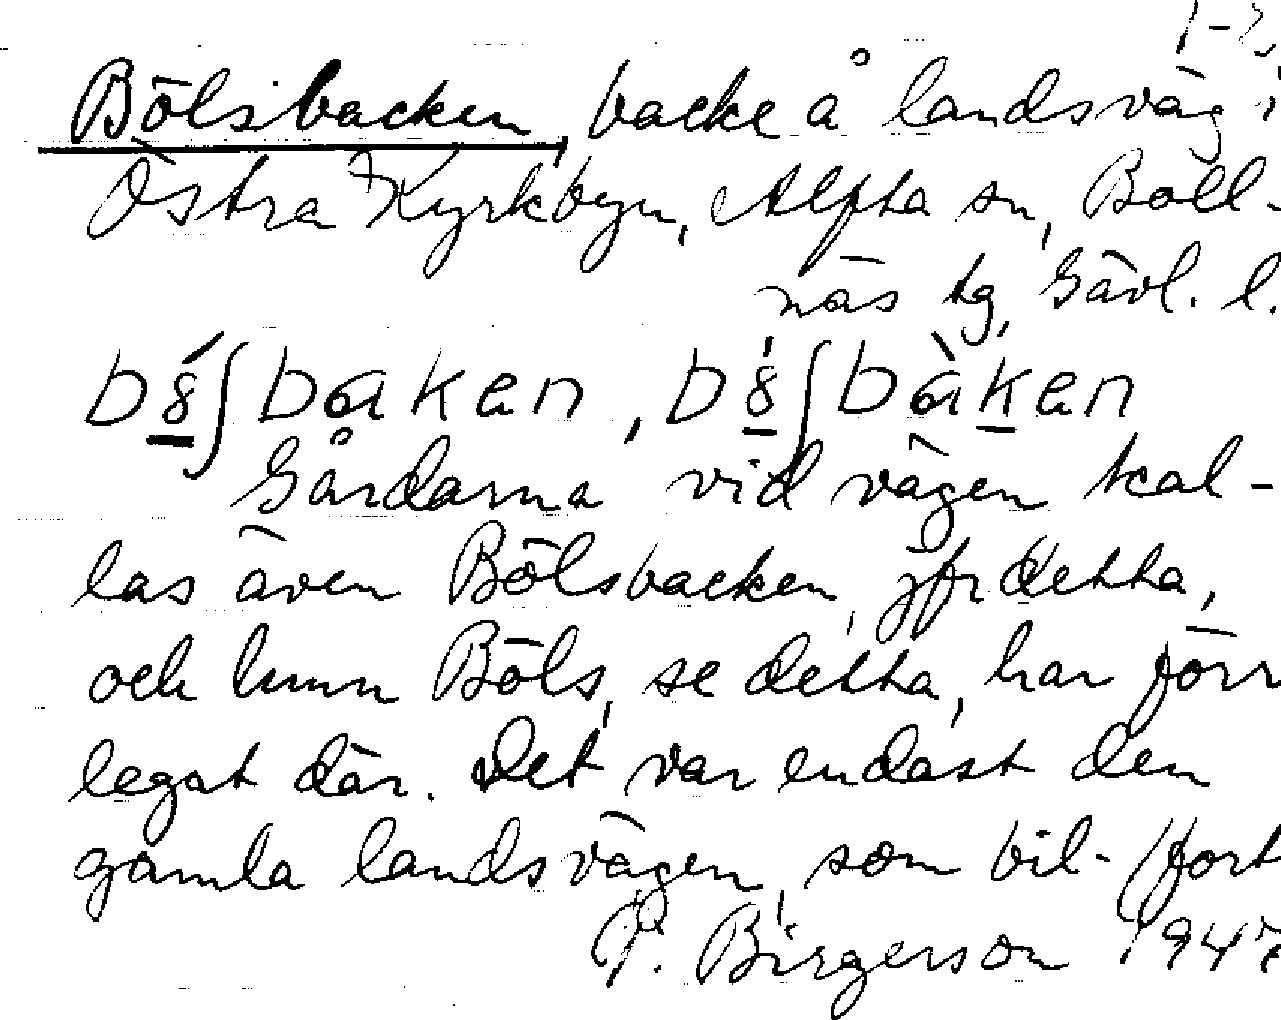 Bölsbacken, backe å landsväg i
Östra Kyrkbyn, Alfta sn, Boll-
näs tg, Gävl. l.
Gårdarna vid vägen kal-
las även Bölsbacken, jfr detta,
och hmn Böls, se detta, har förr
legat där. Det var endast den
gamla landsvägen, som bil- (fort
P. Birgerson 194